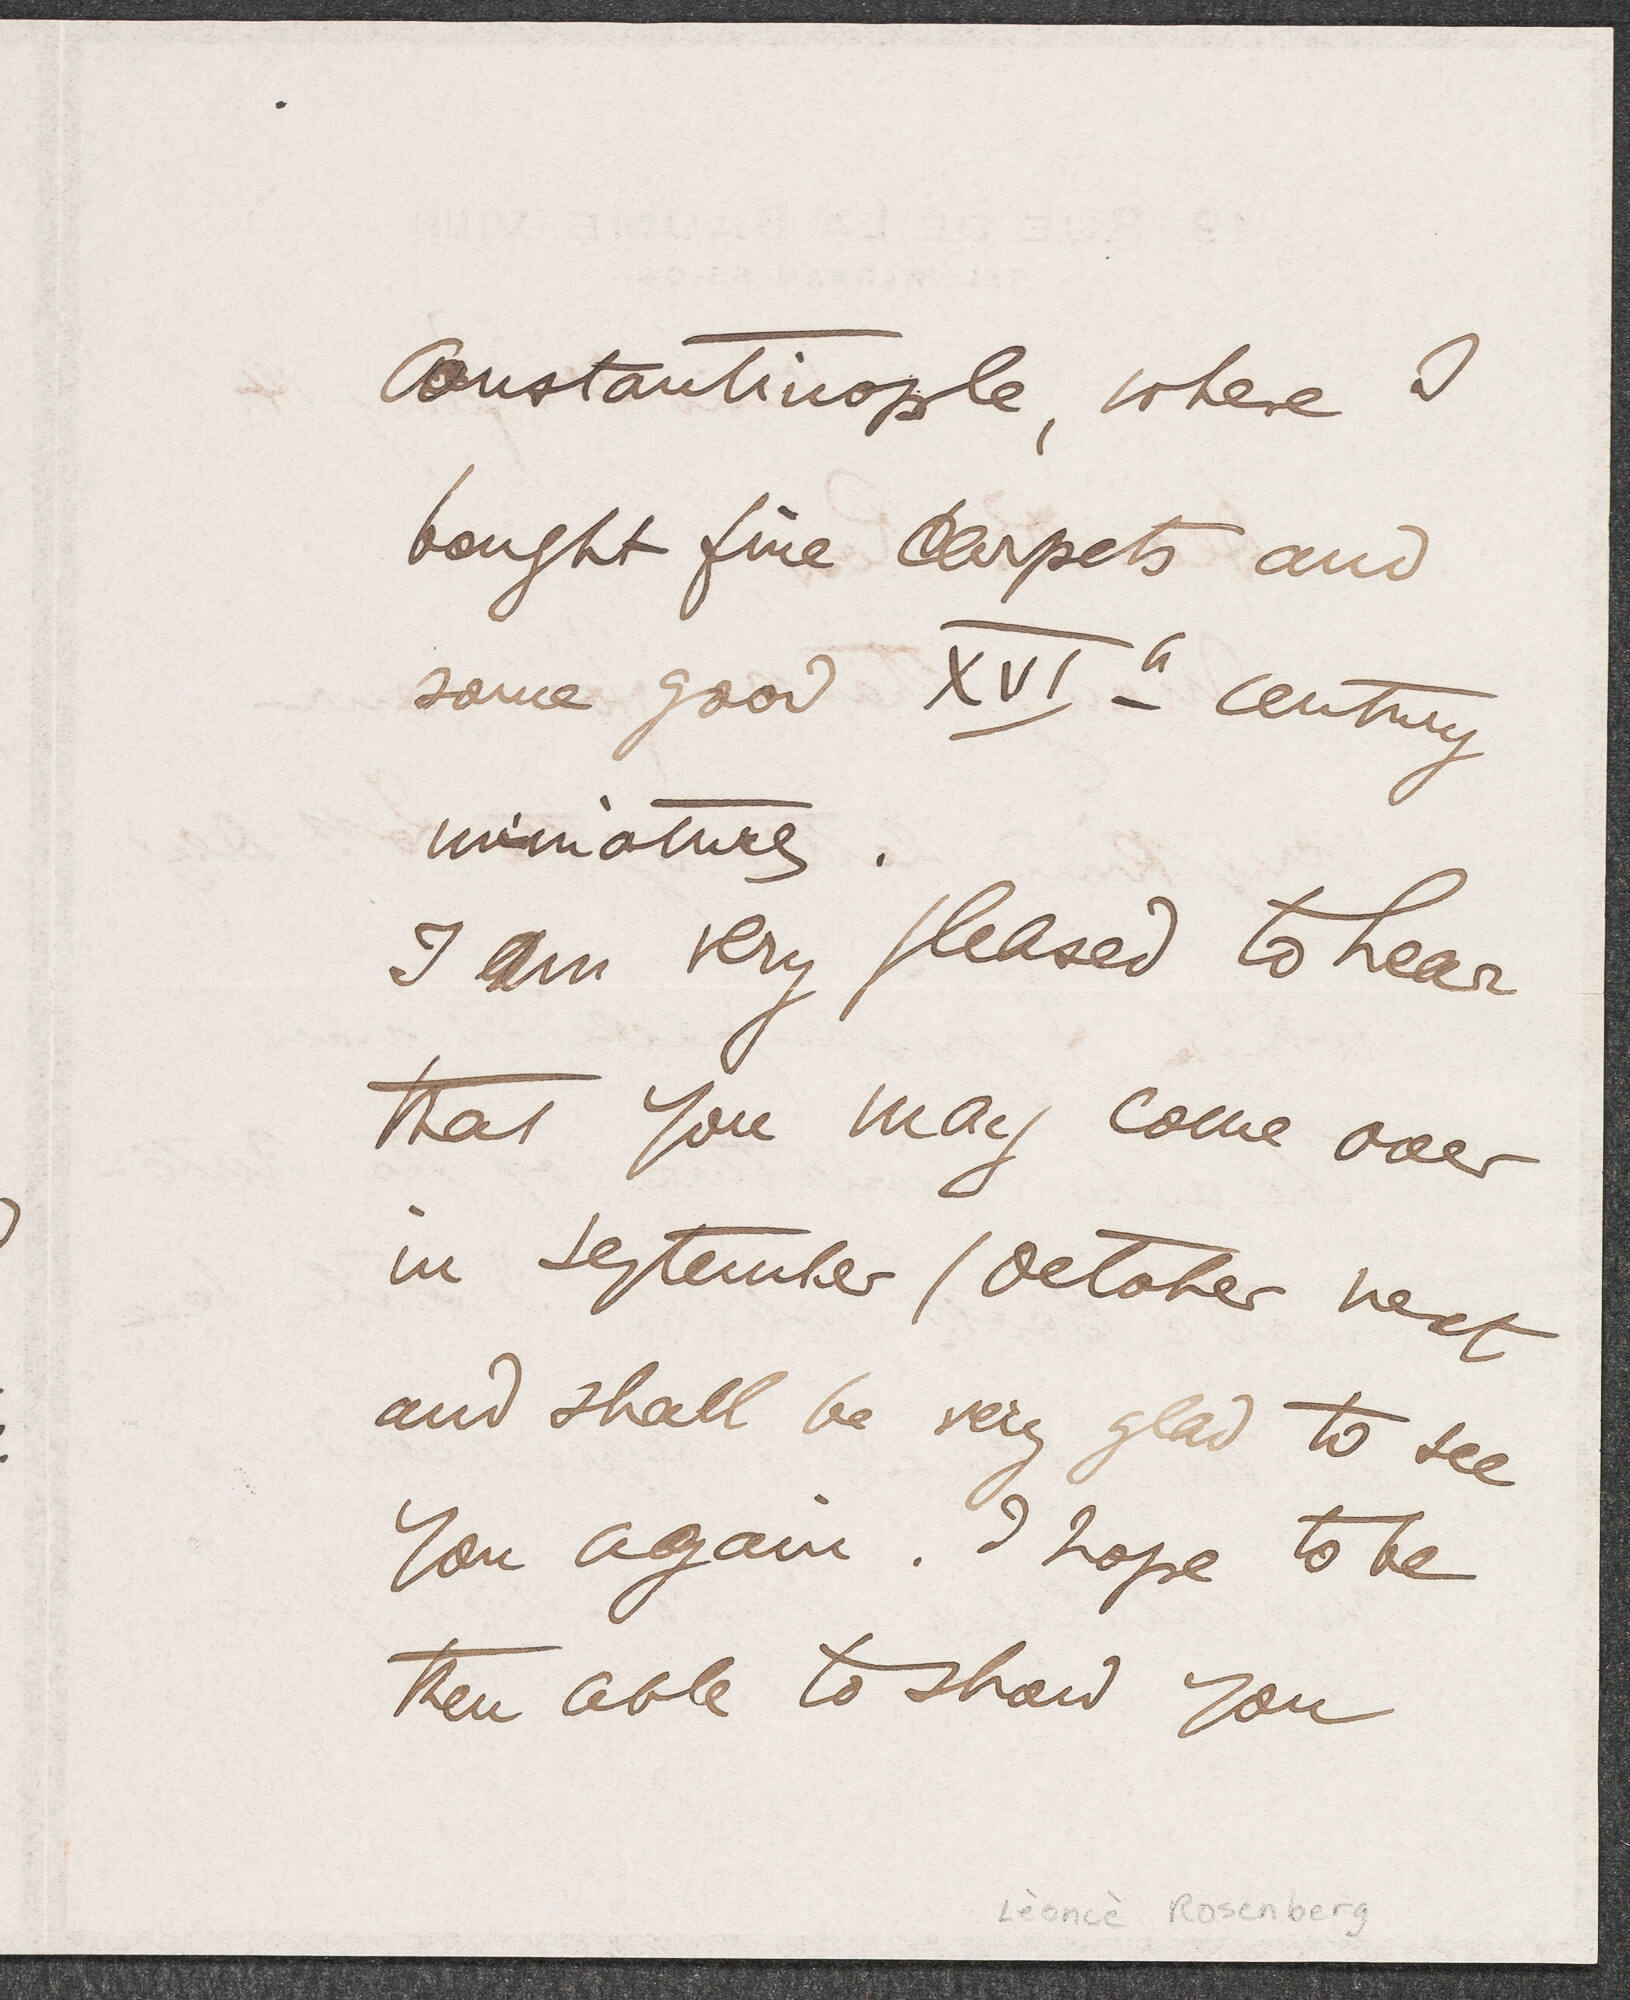 Constantinople, where I
bought fine carpets and
some good XVIh century
miniatures.
I am very pleased to hear
that you may come over
in september / october next
and shall be very glad to see
you again. I hope to be
then able to show you
Lèoncè Rosenberg